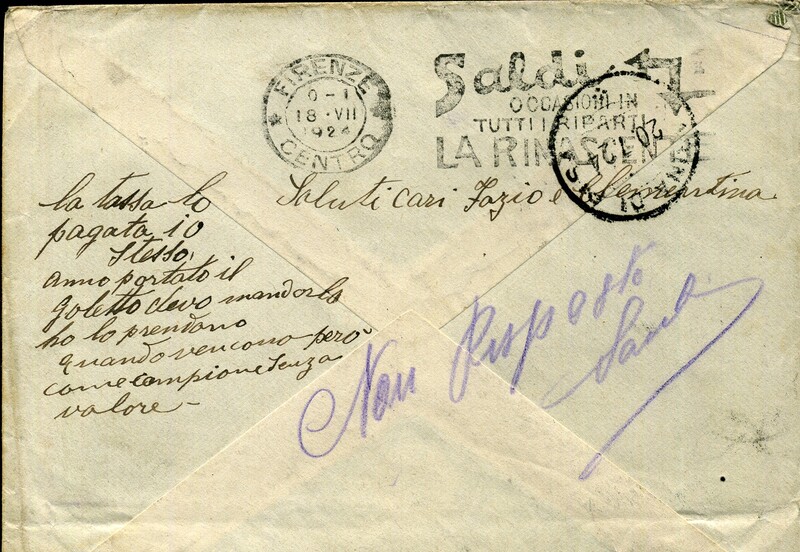 FIRENZE
0-1
18·VII
1924
CENTRO
Saldi
OCCASIONI IN
TUTTI I RIPARTI
LA RINASCENTE
Saluti cari Fazio e Clementina
la tassa lo
pagata io
stesso,
anno portato il
goletto devo mandarlo
ho lo prendano
quando vencono però
come campione senza
valore -
Non Risposto